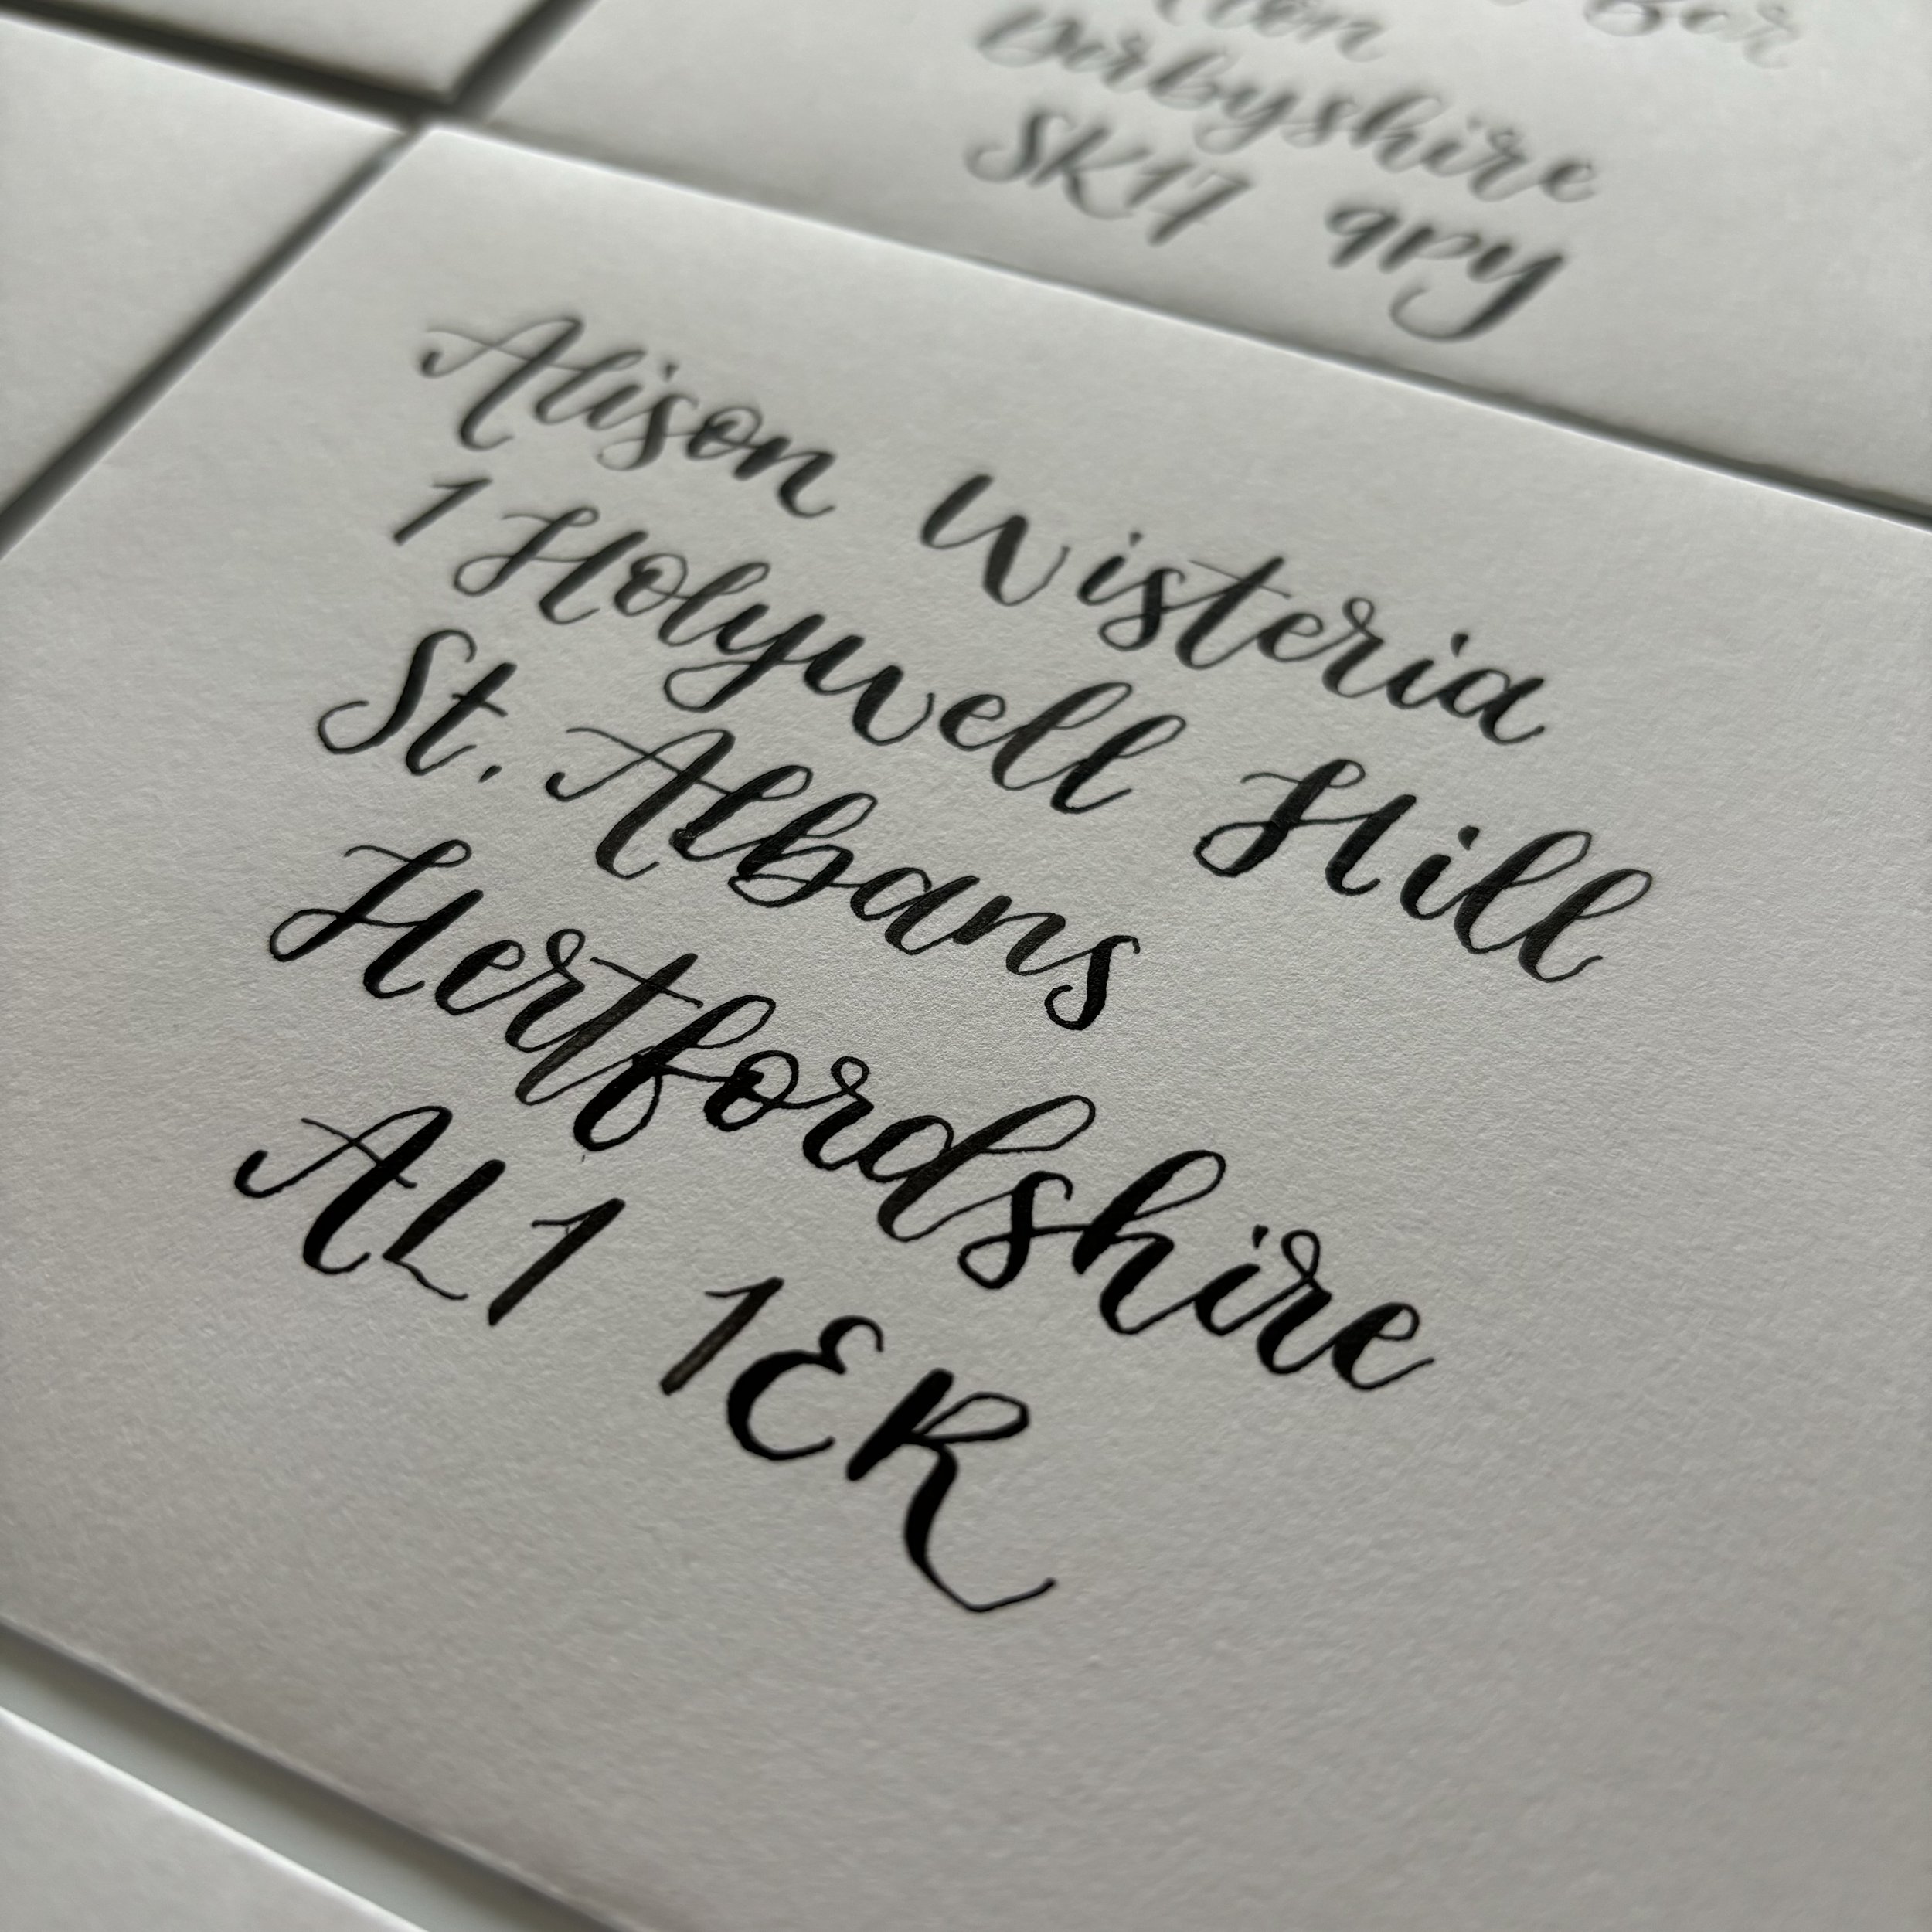 Derbyshire
SK17 9PY
Alison Wisteria
1 Holywell Hill
St. Albans
Hertfordshire
AL1 1ER